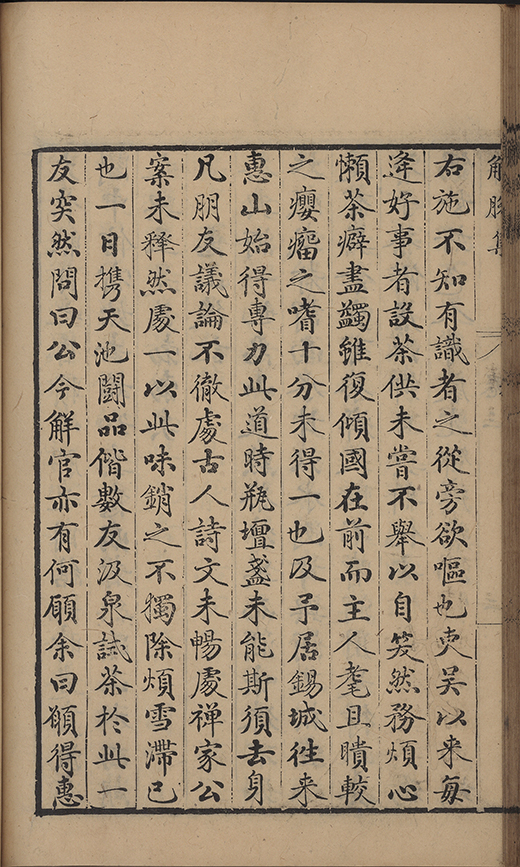 解脫集
右施不知有識者之從旁欲嘔也吏吴以来每
逢好事者設茶供未嘗不舉以自笑然務煩心
懶茶癖盡蠲雖復傾國在前而主人耄且聵較
之癭瘤之嗜十分未得一也及予居錫城徃来
惠山始得專力此道時瓶壇盞未能斯須去身
凡朋友議論不徹處古人詩文未暢處禅家公
案未释然處一以此味銷之不獨除煩雪滯已
也一日携天池鬭品偕數友汲泉試茶於此一
友突然問曰公今解官亦有何願余曰願得惠